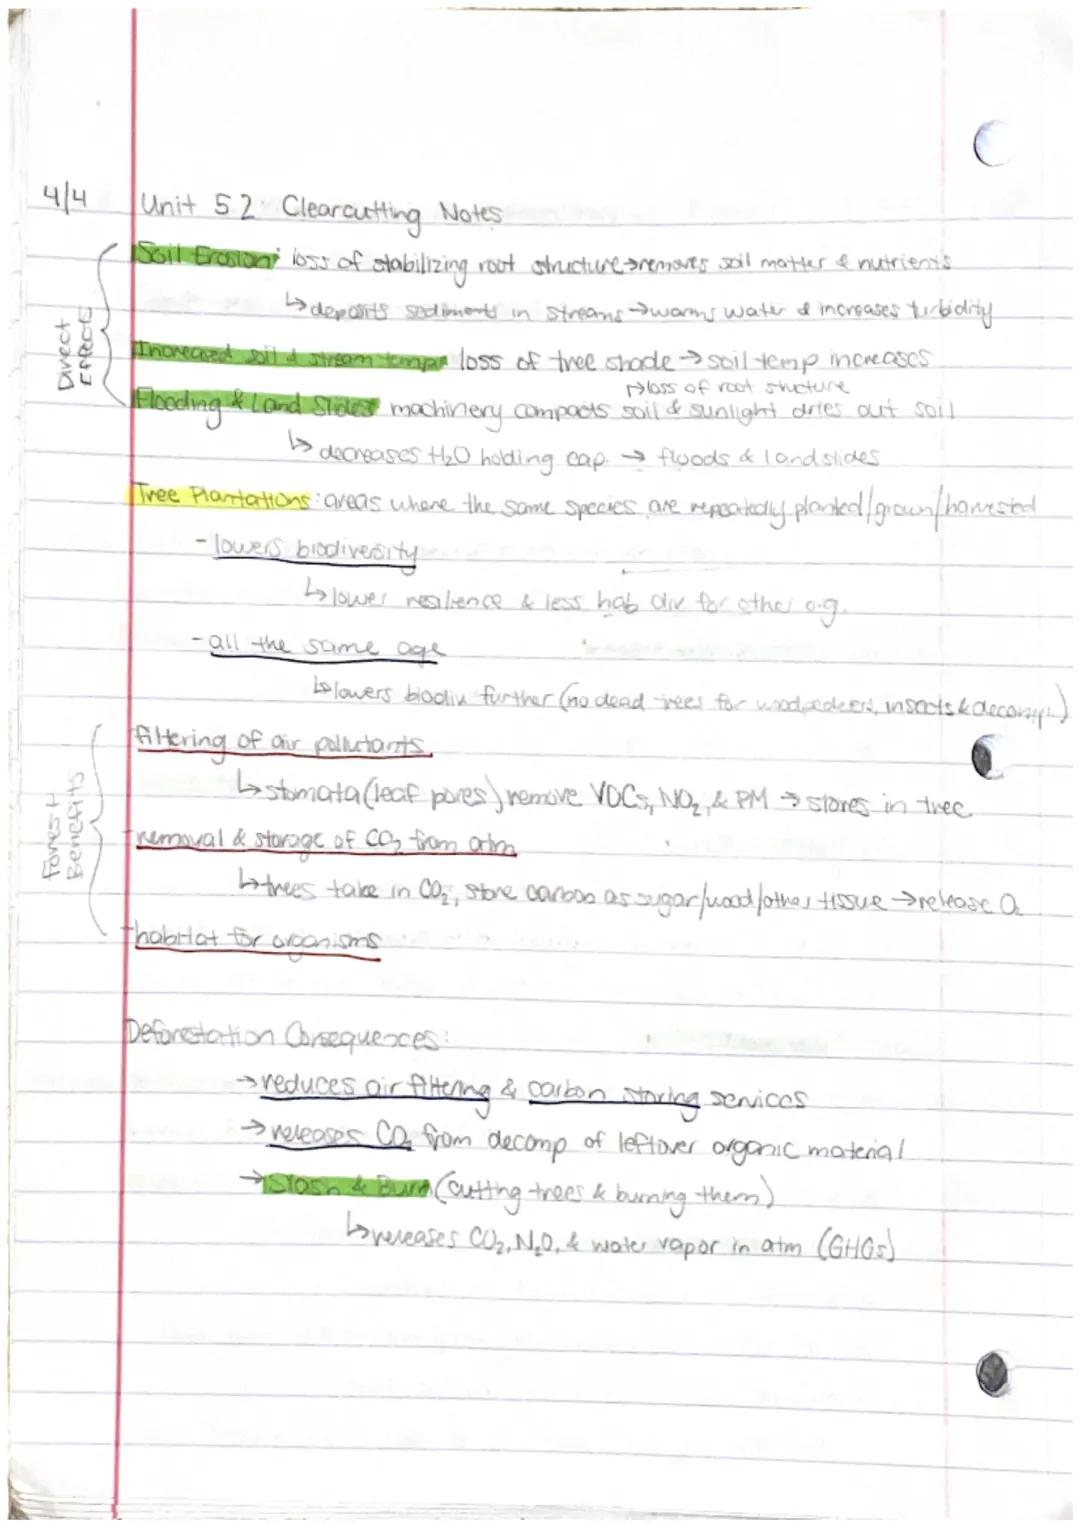 4/4 Unit 5.2 Clearcutting Notes
Direct Effects
Soil Erosion: loss of stabilizing root structure → removes soil matter & nutrients
↳ deposits sediments in streams → warms water & increases turbidity
Increased soil & stream temp: loss of tree shade → soil temp increases
↱ loss of root structure
Flooding & Land Slides machinery compacts soil & sunlight dries out soil
↳ decreases H₂O holding cap. → floods & landslides
Tree Plantations: areas where the same species are repeatedly planted/grown/harvested
- lowers biodiversity
↳ lower resilience & less hab div for other org.
- all the same age
↳ lowers biodiv further (no dead trees for woodpeckers, insects & decomp.)
Forest Benefits
filtering of air pollutants
↳ stomata (leaf pores) remove VOCs, NO₂, & PM → stores in tree
removal & storage of CO₂ from atm
↳ trees take in CO₂, store carbon as sugar/wood/other tissue → release O₂
habitat for organisms
Deforestation Consequences:
→ reduces air filtering & carbon storing services
→ releases CO₂ from decomp of leftover organic material
→ Slash & Burn (cutting trees & burning them)
↳ releases CO₂, N₂O, & water vapor in atm (GHGs)